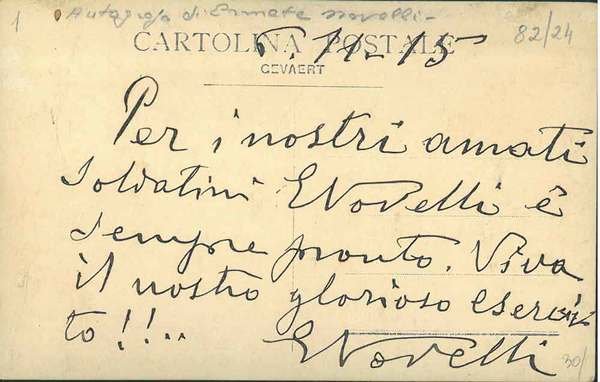 1
Autografo di Ermete Novelli-
82/24
CARTOLINA POSTALE
11-15
GEVAERT
Per i nostri amati
soldatini ENovelli è
sempre pronto. Viva
il nostro glorioso eserci-
to!!..
ENovelli
30/